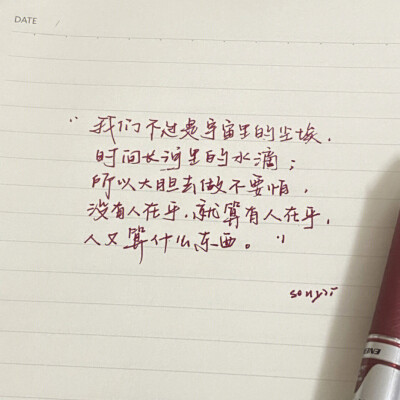 DATE /
“我们不过是宇宙里的尘埃，
时间长河里的水滴；
所以大胆去做不要怕，
没有人在乎，就算有人在乎，
人又算什么东西。”